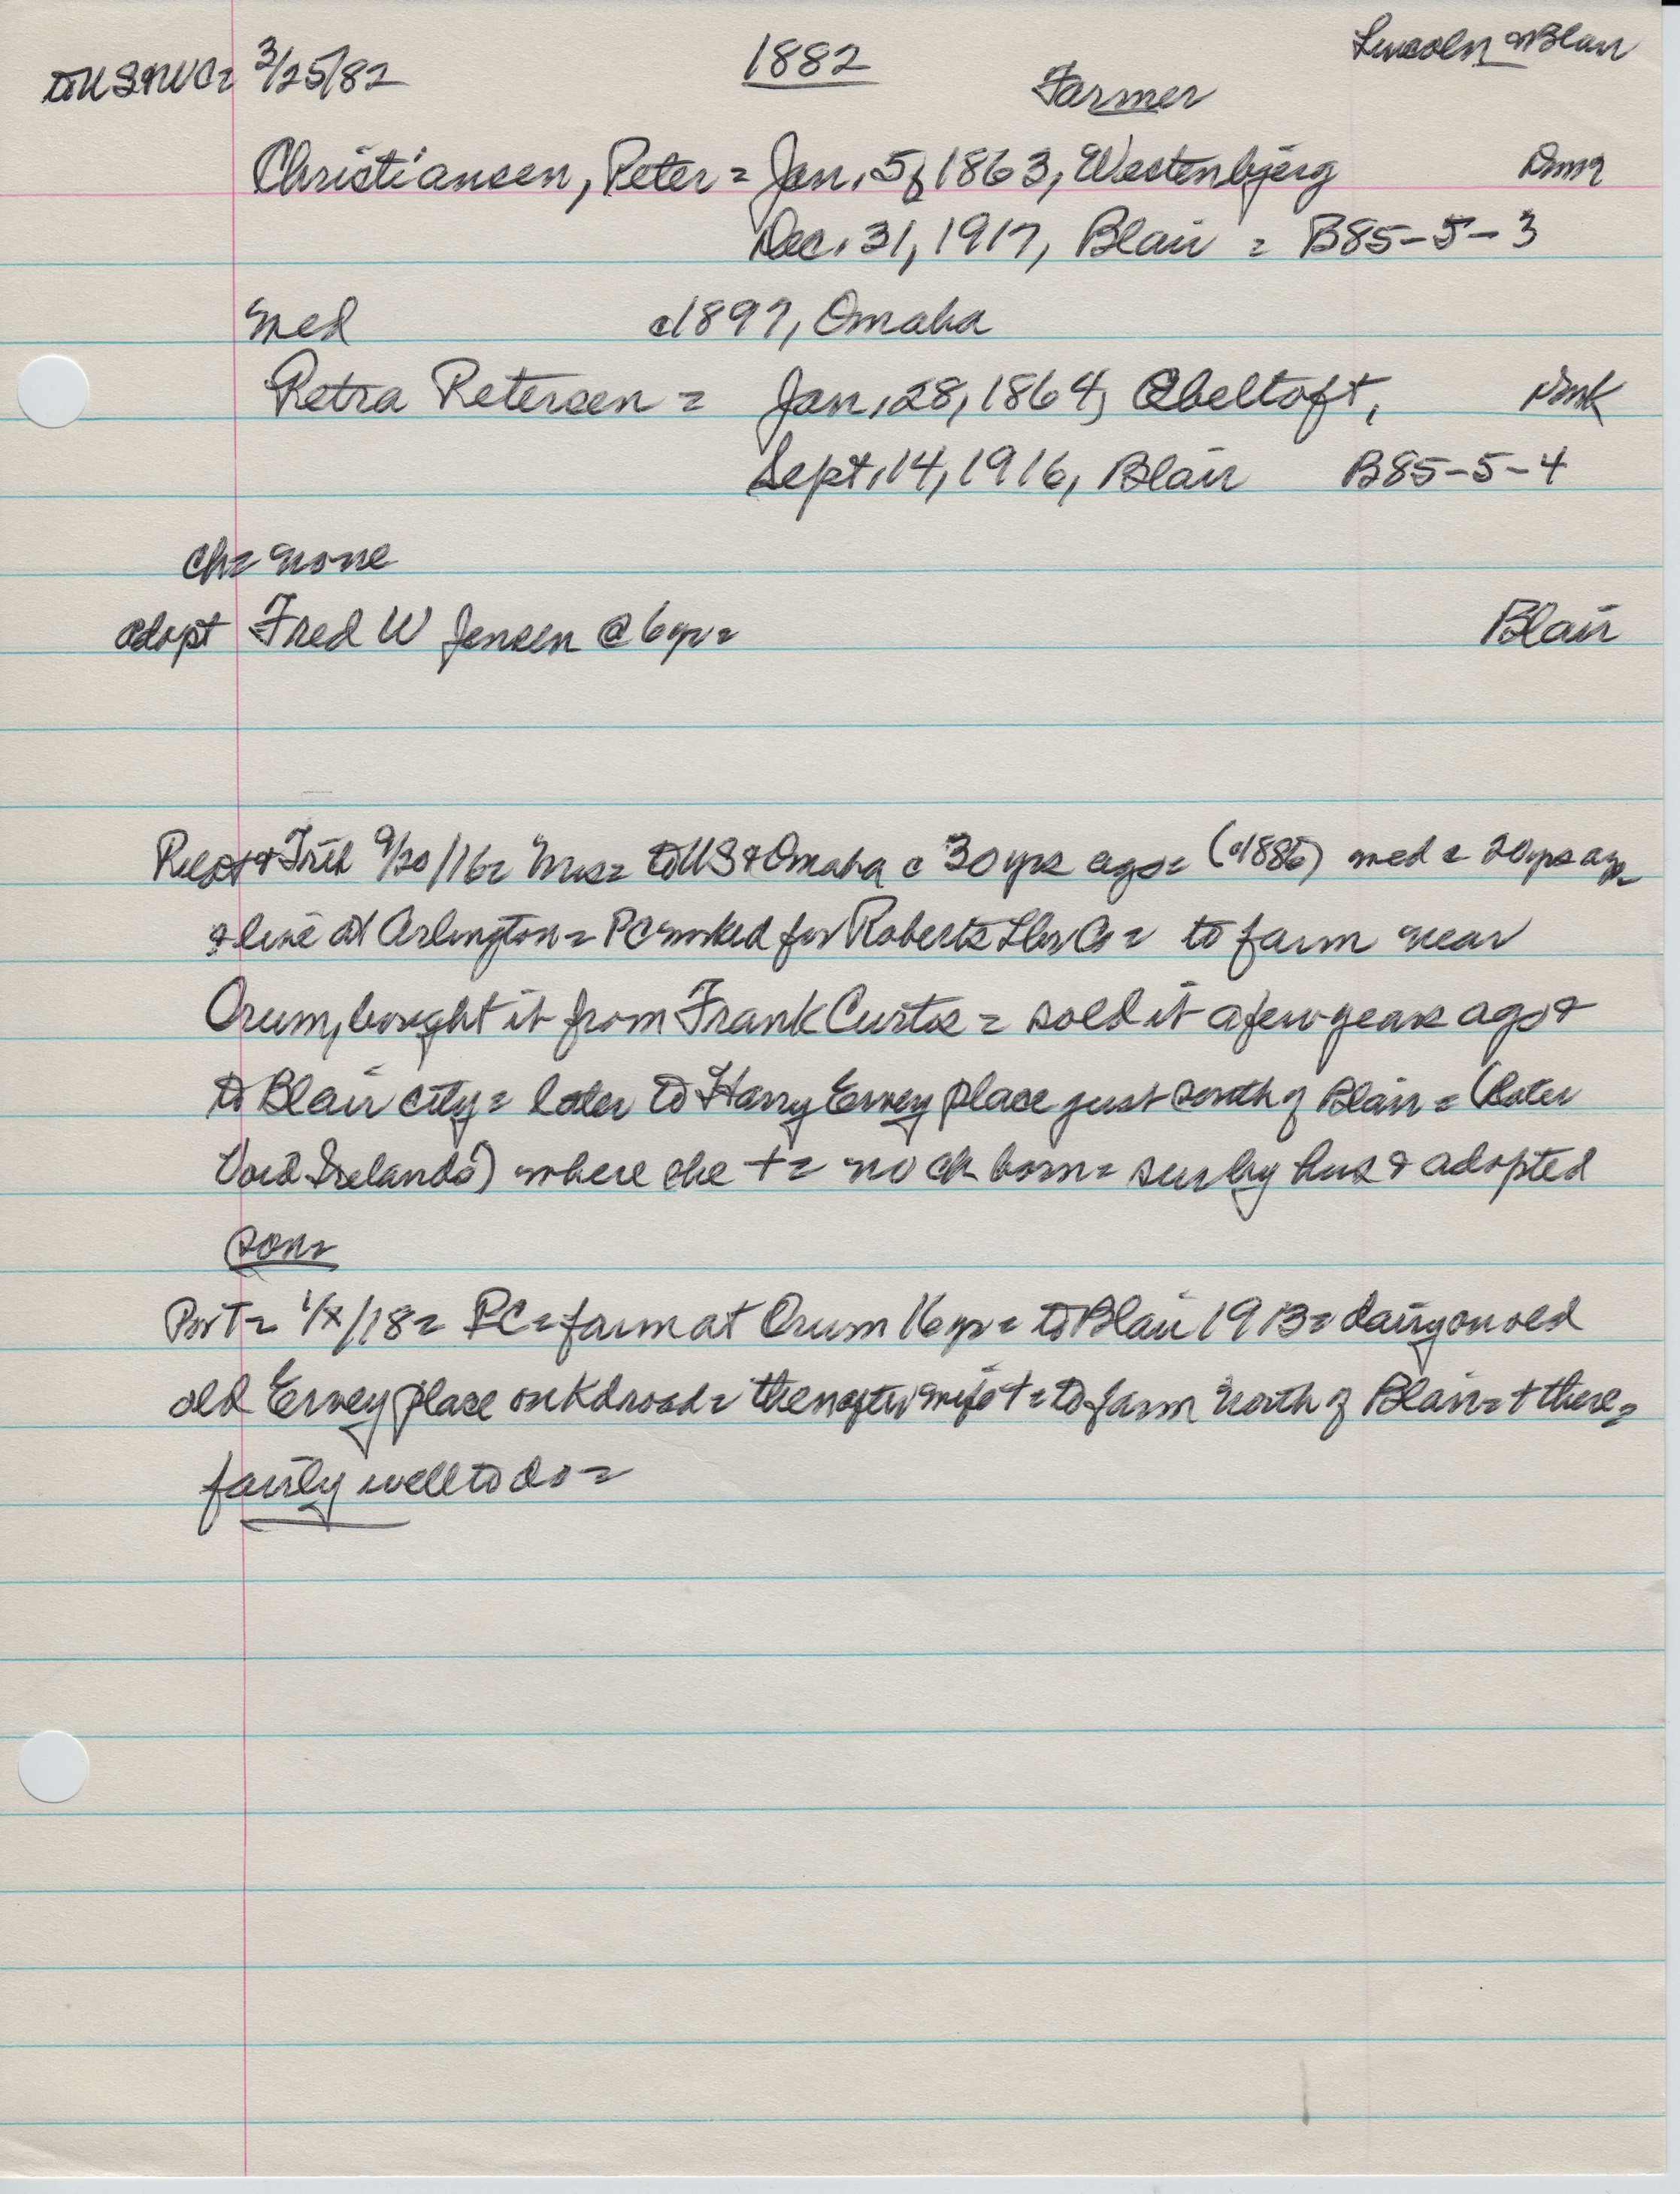 Lincoln & Blair
toUS&WC= 3/25/82 1882 Farmer
Christiansen, Peter = Jan. 5, 1863, Westenbjerg Dmk
Dec. 31, 1917, Blair = B85-5-3
med c1897, Omaha
Petra Petersen = Jan. 28, 1864, Ebeltoft, Dmk
Sept. 14, 1916, Blair B85-5-4
ch= none
adopt Fred W Jensen @ 6yr= Blair
& Trib 9/20/16= Mrs= to US & Omaha c 30 yrs ago= (c1886) med c 20 yrs ago
& live at Arlington = PC worked for Roberts Lbr Co = to farm near
Orum, bought it from Frank Curtis = sold it a few years ago &
to Blair city = later to Harry Ervey place just south of Blair = (later
Irelands) where she += no ch born= sur by hus & adopted
son=
1/2/18= PC = farm at Orum 16 yr = to Blair 1913= dairy on old
old Ervey place on Kd road= then after wife += to farm north of Blair= + there=
fairly well to do =